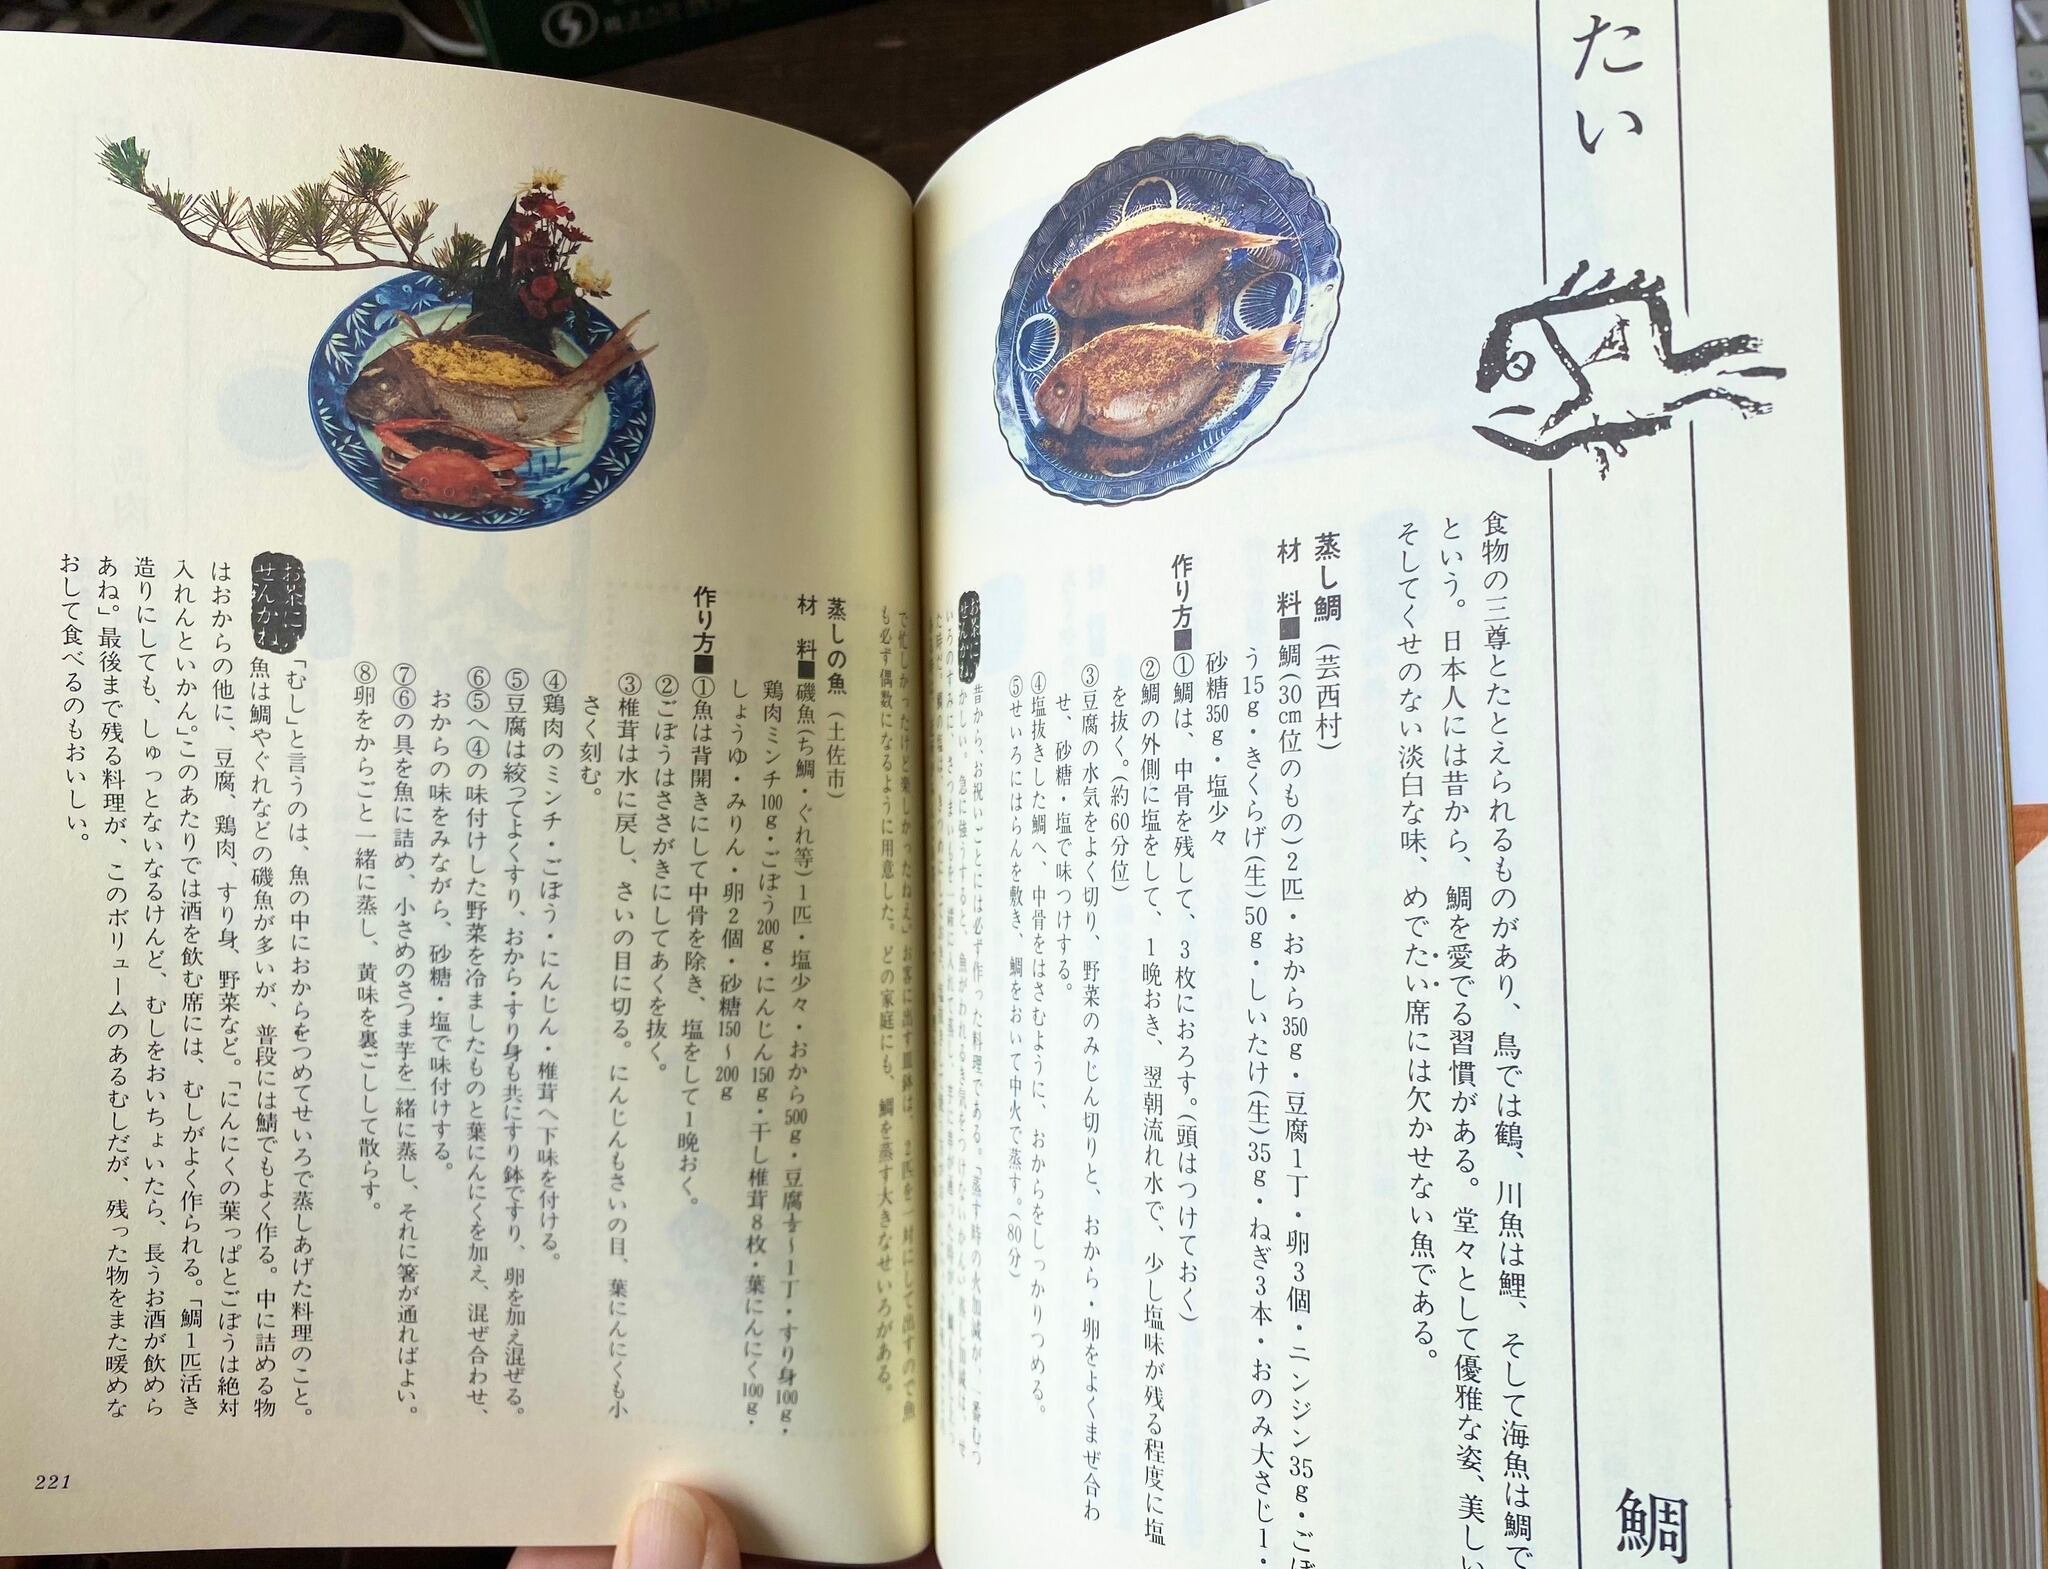 たい
鯛
食物の三尊とたとえられるものがあり、鳥では鶴、川魚は鯉、そして海魚は鯛で
という。日本人には昔から、鯛を愛でる習慣がある。堂々として優雅な姿、美しい
そしてくせのない淡白な味、めでたい席には欠かせない魚である。
蒸し鯛(芸西村)
材 料■鯛(30cm位のもの)2匹・おから350g・豆腐1丁・卵3個・ニンジン35g・ごぼ
う15g・きくらげ(生)50g・しいたけ(生)35g・ねぎ3本・おのみ大さじ1・
砂糖350g・塩少々
作り方■①鯛は、中骨を残して、3枚におろす。(頭はつけておく)
②鯛の外側に塩をして、1晩おき、翌朝流れ水で、少し塩味が残る程度に塩
を抜く。(約60分位)
③豆腐の水気をよく切り、野菜のみじん切りと、おから・卵をよくまぜ合わ
せ、砂糖・塩で味つけする。
④塩抜きした鯛へ、中骨をはさむように、おからをしっかりつめる。
⑤せいろにはらんを敷き、鯛をおいて中火で蒸す。(80分)
お茶に
せんかね
昔から、お祝いごとには必ず作った料理である。「蒸す時の火加減が、一番むつ
かしい。急に強うすると、魚がわれるき気をつけないかん」
で忙しかったけど楽しかったねえ」お客に出す皿鉢は、2匹を一対にして出すので魚
も必ず偶数になるように用意した。どの家庭にも、鯛を蒸す大きなせいろがある。
蒸しの魚(土佐市)
材 料■磯魚(ち鯛・ぐれ等)1匹・塩少々・おから500g・豆腐½〜1丁・すり身100g・
鶏肉ミンチ100g・ごぼう200g・にんじん150g・干し椎茸8枚・葉にんにく100g・
しょうゆ・みりん・卵2個・砂糖150〜200g
作り方■①魚は背開きにして中骨を除き、塩をして1晩おく。
②ごぼうはささがきにしてあくを抜く。
③椎茸は水に戻し、さいの目に切る。にんじんもさいの目、葉にんにくも小
さく刻む。
④鶏肉のミンチ・ごぼう・にんじん・椎茸へ下味を付ける。
⑤豆腐は絞ってよくすり、おから・すり身も共にすり鉢ですり、卵を加え混ぜる。
⑥⑤へ④の味付けした野菜を冷ましたものと葉にんにくを加え、混ぜ合わせ、
おからの味をみながら、砂糖・塩で味付けする。
⑦⑥の具を魚に詰め、小さめのさつま芋を一緒に蒸し、それに箸が通ればよい。
⑧卵をからごと一緒に蒸し、黄味を裏ごしして散らす。
お茶に
せんかね
「むし」と言うのは、魚の中におからをつめてせいろで蒸しあげた料理のこと。
魚は鯛やぐれなどの磯魚が多いが、普段には鯖でもよく作る。中に詰める物
はおからの他に、豆腐、鶏肉、すり身、野菜など。「にんにくの葉っぱとごぼうは絶対
入れんといかん。」このあたりでは酒を飲む席には、むしがよく作られる。「鯛1匹活き
造りにしても、しゅっとないなるけんど、むしをおいちょいたら、長うお酒が飲めら
あね」。最後まで残る料理が、このボリュームのあるむしだが、残った物をまた暖めな
おして食べるのもおいしい。
221